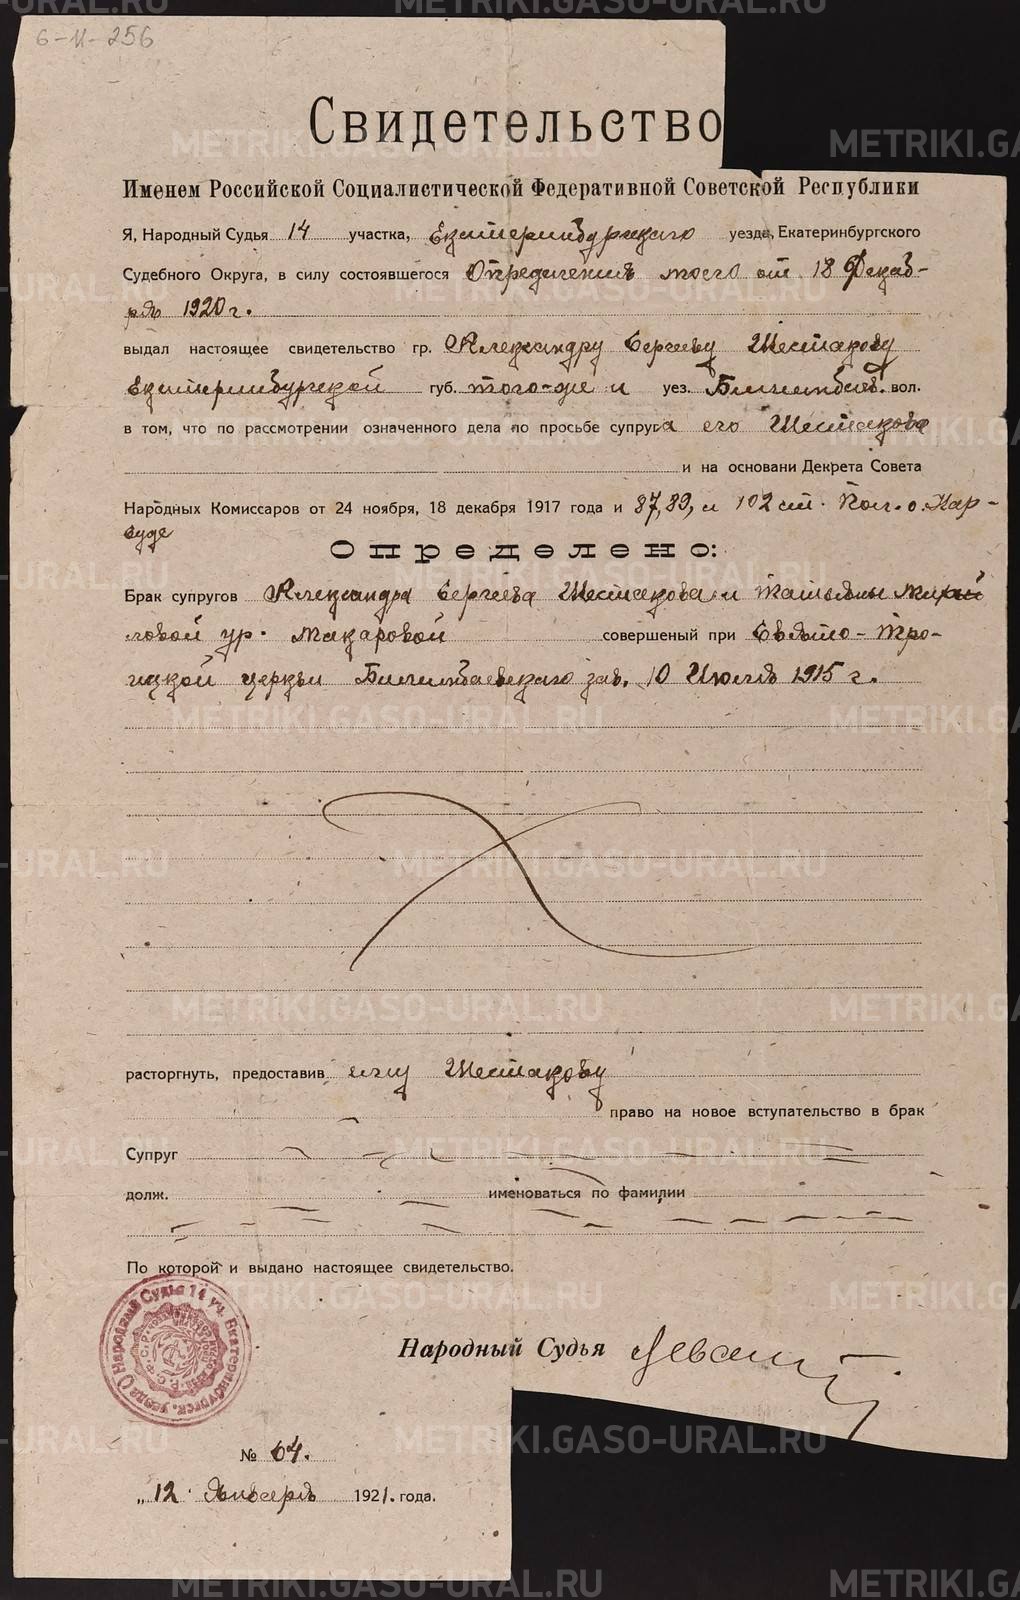 6-И-256
Свидетельство
Именем Российской Социалистической Федеративной Советской Республики
Я, Народный Судья 14 участка, Екатеринбургскаго уезда, Екатеринбургского
Судебного Округа, в силу состоявшегося Определения моего от 18 Декаб-
ря 1920 г.
выдал настоящее свидетельство гр. Александру Сергееву Шестакову
Екатеринбургской губ. того-же и уез. Билимбаев. вол.
в том, что по рассмотрении означенного дела по просьбе супруга его Шестакова
и на основани Декрета Совета
Народных Комиссаров от 24 ноября, 18 декабря 1917 года и 87, 89, и 102 ст. Пол. о Нар-
суде
Определено:
Брак супругов Александра Сергеева Шестакова и Татьяны
ловой ур. Макаровой совершеный при Свято-Тро-
ицкой церкви Билимбаевскаго зав. 10 Июля 1915 г.
расторгнуть, предоставив ему Шестакову
право на новое вступательство в брак
Супруг
долж. именоваться по фамилии
По которой и выдано настоящее свидетельство.
Народный Судья 14 уч. Екатеринбургск. уезда
Р.С.Ф.С.Р.
Народный Судья
№ 64.
„12 Января 1921. года.
METRIKI.GASO-URAL.RU